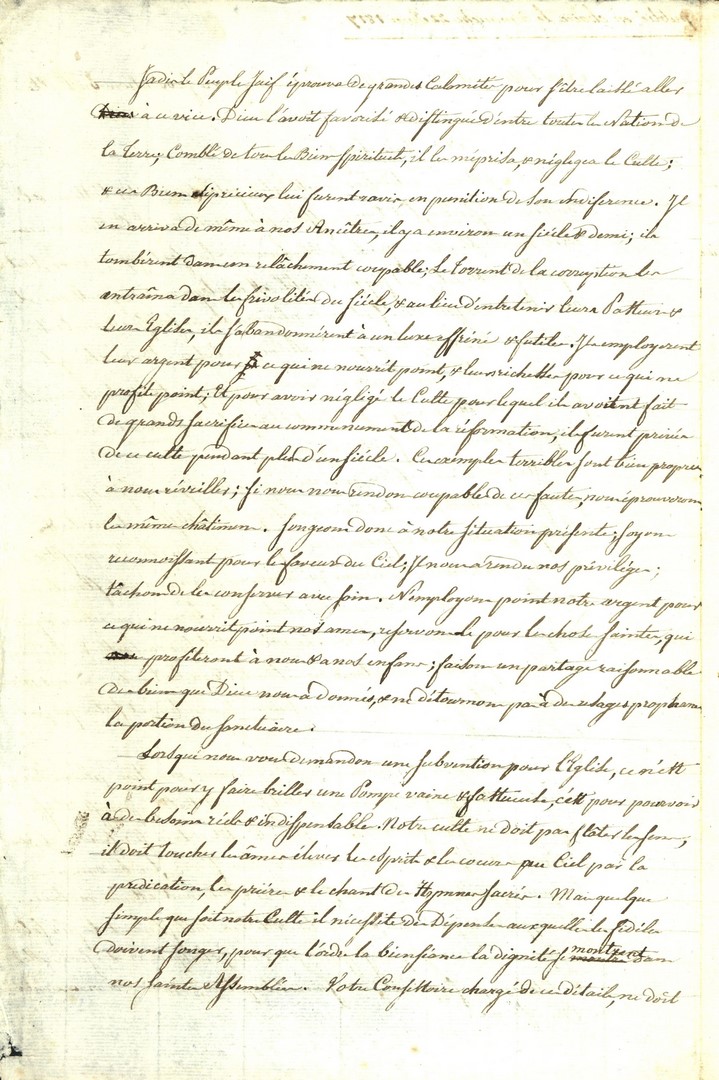 Jadis le Peuple Juif éprouva de grandes Calamités pour s'être laissé aller
à ce vice. Dieu l'avoit favorisé & distingué d'entre toutes les Nations de
la Terre; Comblé de tous les Biens spirituels, il les méprisa, & négligea le Culte;
& ces Biens si précieux lui furent ravis en punition de son indiference. Il
en arriva de même à nos Ancêtres, il y a environ un siécle & demi; ils
tombérent dans un relâchement coupable; Le torrent de la corruption les
entraîna dans les frivolités du siécle, & au lieu d'entretenir leurs Pasteurs &
leurs Eglises, ils s'abandonnérent à un luxe effréné & futile. Ils employerent
leur argent pour ce qui ne nourrit point, & leurs richesses pour ce qui ne
profite point; Et pour avoir négligé le Culte pour lequel ils avoient fait
de grands sacrifices au commencement de la réformation, ils furent privés
de ce culte pendant plus d'un siécle. Ces exemples terribles sont bien propres
à nous réveiller; si nous nous rendons coupables de ces fautes, nous éprouverons
les mêmes châtimens. Songeons donc à notre situation présente; soyons
reconnoissans pour les faveurs du Ciel; Il nous a rendu nos priviléges;
tâchons de les conserver avec soin. N'employons point notre argent pour
ce qui ne nourrit point nos ames, reservons le pour les choses saintes, qui
profiteront à nous & à nos enfans; faisons un partage raisonnable
des biens que Dieu nous a donnés, & ne détournons pas à des usages prophanes
la portion du sanctuaire.
Lorsque nous vous demandons une subvention pour l'Eglise, ce n'est
point pour y faire briller une Pompe vaine & fastueuse, c'est pour pourvoir
à des besoins réels & indispensables. Notre culte ne doit pas flâter les sens,
il doit toucher les âmes élever les esprits & les coeurs au Ciel par la
prédication, les priéres & le chant des Hymnes sacrés. Mais quelque
simple que soit notre Culte il nécessite des Dépenses auxquelles les fidéles
doivent songer, pour que l'ordre la bienséance la dignité se montrent dans
nos saintes Assemblées. Votre Consistoire chargé de ces détails, ne doit